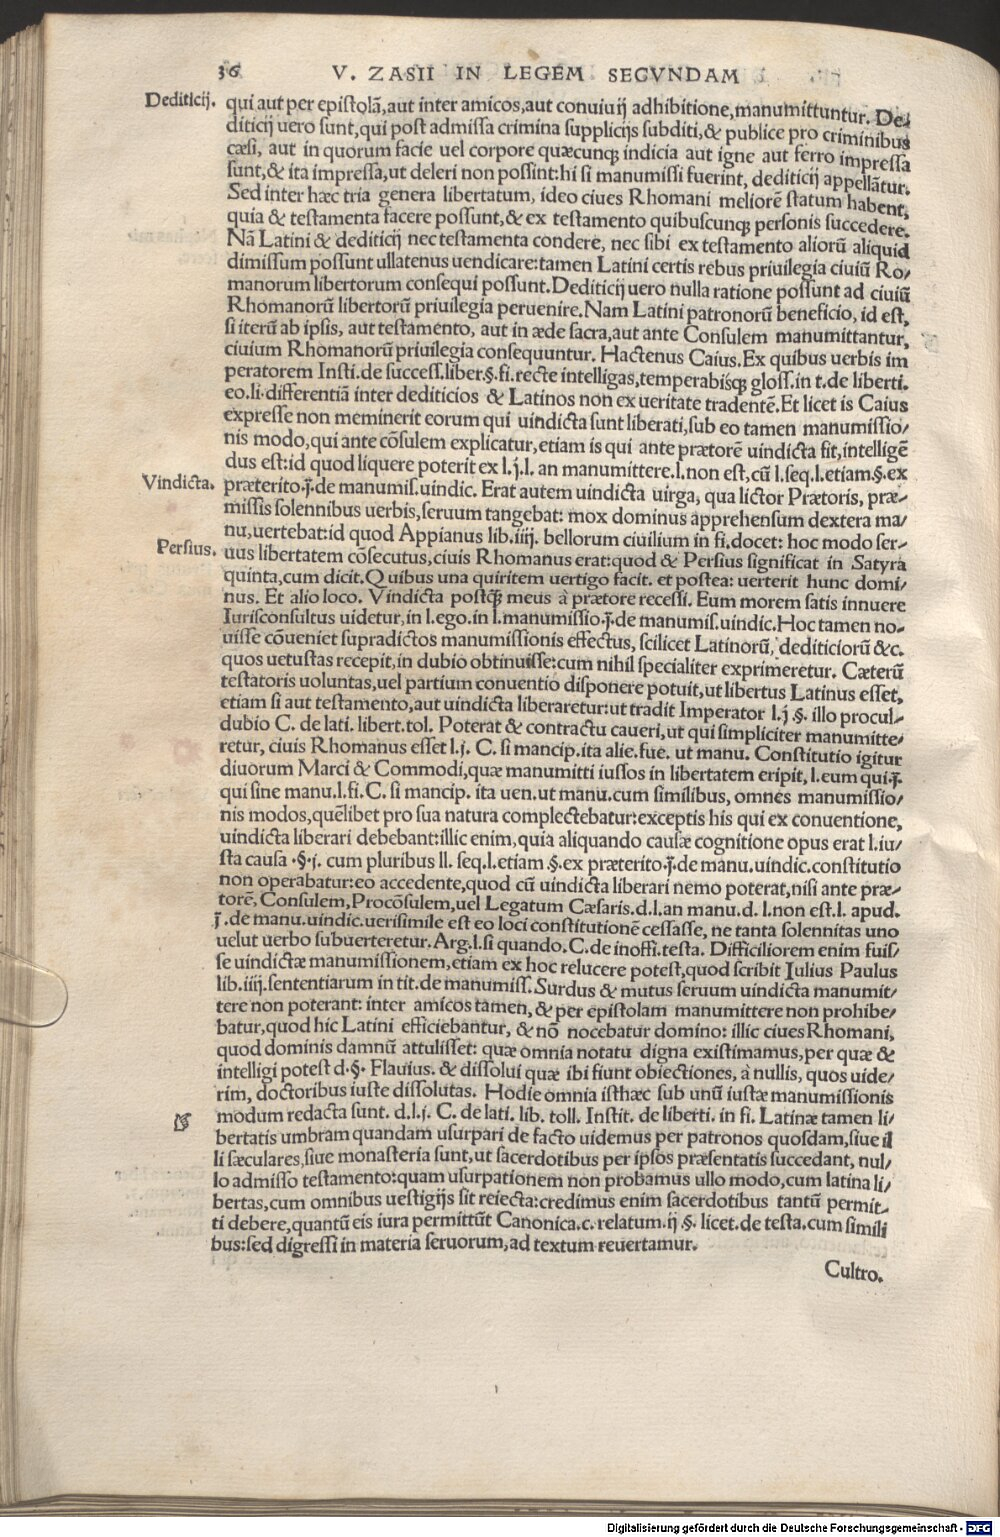 36 V. ZASII IN LEGEM SECVNDAM
Dediticij. qui aut per epistolā, aut inter amicos, aut conuiuij adhibitione, manumittuntur. De/
diticij uero sunt, qui post admissa crimina supplicijs subditi, & publice pro criminibus
cæsi, aut in quorum facie uel corpore quæcunq; indicia aut igne aut ferro impressa
sunt, & ita impressa, ut deleri non possint: hi si manumissi fuerint, dediticij appellātur.
Sed inter hæc tria genera libertatum, ideo ciues Rhomani meliorē statum habent,
quia & testamenta facere possunt, & ex testamento quibuscunq; personis succedere.
Nā Latini & dediticij nec testamenta condere, nec sibi ex testamento aliorū aliquid
dimissum possunt ullatenus uendicare: tamen Latini certis rebus priuilegia ciuiū Ro/
manorum libertorum consequi possunt. Dediticij uero nulla ratione possunt ad ciuiū
Rhomanorū libertorū priuilegia peruenire. Nam Latini patronorū beneficio, id est,
si iterū ab ipsis, aut testamento, aut in æde sacra, aut ante Consulem manumittantur,
ciuium Rhomanorū priuilegia consequuntur. Hactenus Caius. Ex quibus uerbis im
peratorem Insti. de success. liber. §. fi. recte intelligas, temperabisq; gloss. in t. de liberti.
eo. li. differentiā inter dediticios & Latinos non ex ueritate tradentē. Et licet is Caius
expresse non meminerit eorum qui uindicta sunt liberati, sub eo tamen manumissio/
nis modo, qui ante cōsulem explicatur, etiam is qui ante prætorē uindicta fit, intelligē
dus est: id quod liquere poterit ex l. j. l. an manumittere. l. non est, cū l. seq. l. etiam. §. ex
Vindicta. præterito. ff. de manumis. uindic. Erat autem uindicta uirga, qua lictor Prætoris, præ/
missis solennibus uerbis, seruum tangebat: mox dominus apprehensum dextera ma/
nu, uertebat: id quod Appianus lib. iiij. bellorum ciuilium in fi, docet: hoc modo ser/
Persius. uus libertatem cōsecutus, ciuis Rhomanus erat: quod & Persius significat in Satyra
quinta, cum dicit. Quibus una quiritem uertigo facit. et postea: uerterit hunc domi/
nus. Et alio loco. Vindicta postq̄ meus à prætore recessi. Eum morem satis innuere
Iurisconsultus uidetur, in l. ego. in l. manumissio. ff. de manumis. uindic. Hoc tamen no/
uisse cōueniet supradictos manumissionis effectus, scilicet Latinorū, dediticiorū &c.
quos uetustas recepit, in dubio obtinuisse: cum nihil specialiter exprimeretur. Cæterū
testatoris uoluntas, uel partium conuentio disponere potuit, ut libertus Latinus esset,
etiam si aut testamento, aut uindicta liberaretur: ut tradit Imperator l. j. §. illo procul/
dubio C. de lati. libert. tol. Poterat & contractu caueri, ut qui simpliciter manumitte/
retur, ciuis Rhomanus esset l. j. C. si mancip. ita alie. fue. ut manu. Constitutio igitur
diuorum Marci & Commodi, quæ manumitti iussos in libertatem eripit, l. eum qui. ff.
qui sine manu. l. fi. C. si mancip. ita uen. ut manu. cum similibus, omnes manumissio/
nis modos, quēlibet pro sua natura complectebatur: exceptis his qui ex conuentione,
uindicta liberari debebant: illic enim, quia aliquando causæ cognitione opus erat l. iu/
sta causa .§. j. cum pluribus ll. seq. l. etiam .§. ex præterito. ff. de manu. uindic. constitutio
non operabatur: eo accedente, quod cū uindicta liberari nemo poterat, nisi ante præ/
torē, Consulem, Procōsulem, uel Legatum Cæsaris. d. l. an manu. d. l. non est. l. apud.
ff. de manu. uindic. uerisimile est eo loci constitutionē cessasse, ne tanta solennitas uno
uelut uerbo subuerteretur. Arg. l. si quando. C. de inoffi. testa. Difficiliorem enim fuis/
se uindictæ manumissionem, etiam ex hoc relucere potest, quod scribit Iulius Paulus
lib. iiij. sententiarum in tit. de manumiss. Surdus & mutus seruum uindicta manumit/
tere non poterant: inter amicos tamen, & per epistolam manumittere non prohibe/
batur, quod hic Latini efficiebantur, & nō nocebatur domino: illic ciues Rhomani,
quod dominis damnū attulisset: quæ omnia notatu digna existimamus, per quæ &
intelligi potest d. §. Flauius. & dissolui quæ ibi fiunt obiectiones, à nullis, quos uide/
rim, doctoribus iuste dissolutas. Hodie omnia isthæc sub unū iustæ manumissionis
modum redacta sunt. d. l. j. C. de lati. lib. toll. Instit. de liberti. in fi. Latinæ tamen li/
bertatis umbram quandam usurpari de facto uidemus per patronos quosdam, siue il
li sæculares, siue monasteria sunt, ut sacerdotibus per ipsos præsentatis succedant, nul/
lo admisso testamento: quam usurpationem non probamus ullo modo, cum latina li/
bertas, cum omnibus uestigijs sit reiecta: credimus enim sacerdotibus tantū permit/
ti debere, quantū eis iura permittūt Canonica. c. relatum. ij. §. licet. de testa. cum simili
bus: sed digressi in materia seruorum, ad textum reuertamur.
Cultro.
Digitalisierung gefördert durch die Deutsche Forschungsgemeinschaft - DFG